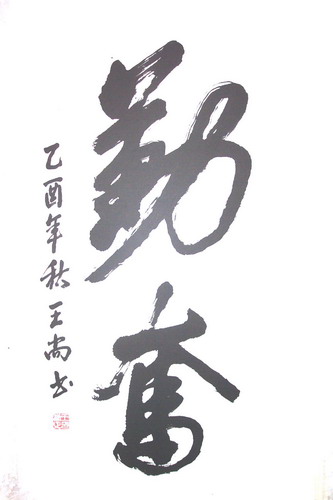 勤奮
乙酉年秋王尚书